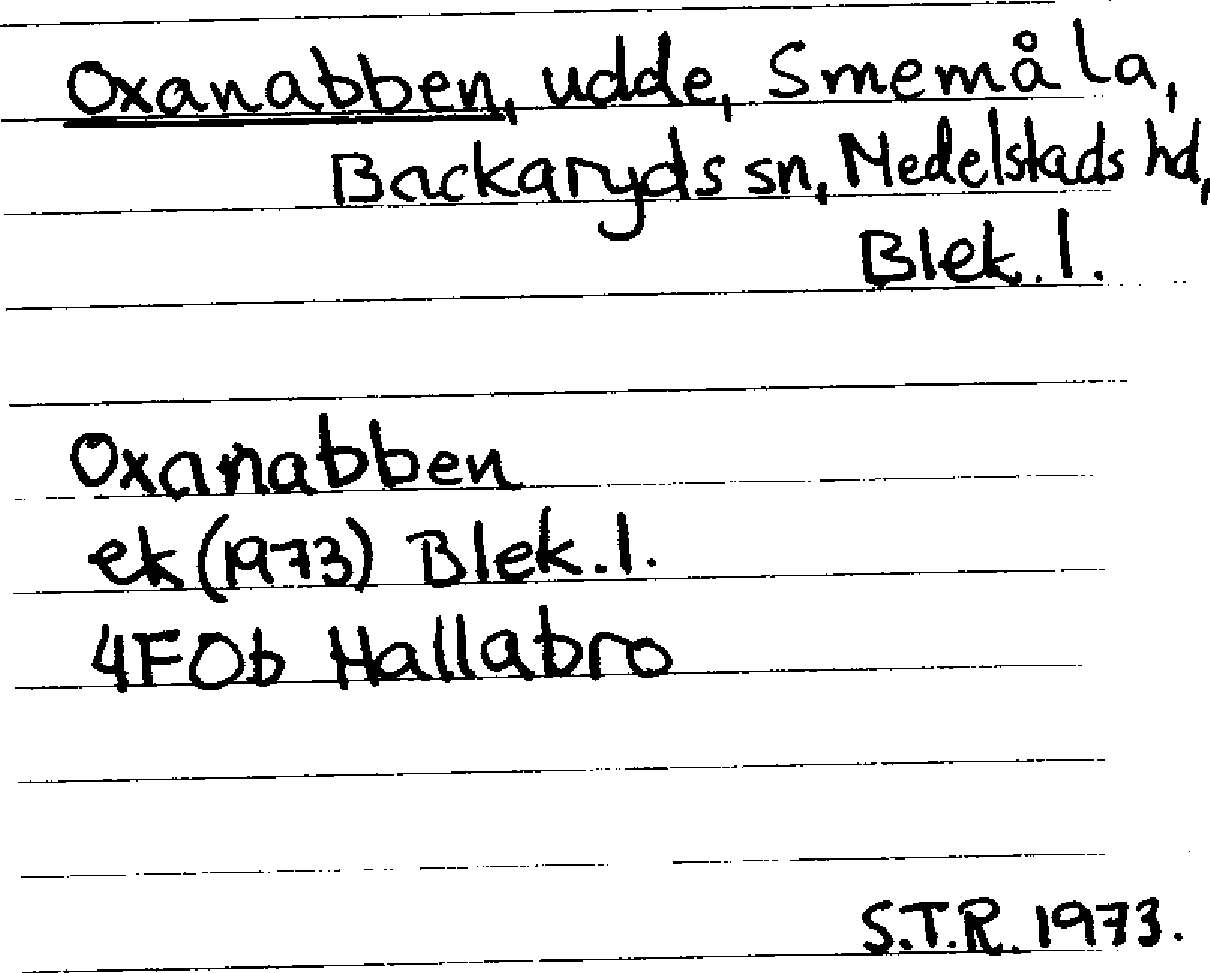 Oxanabben, udde, Smemåla,
Backaryds sn, Medelstads hd,
Blek. l.
Oxanabben
ek (1973) Blek. l.
4F0b Hallabro
S.T.R. 1973.